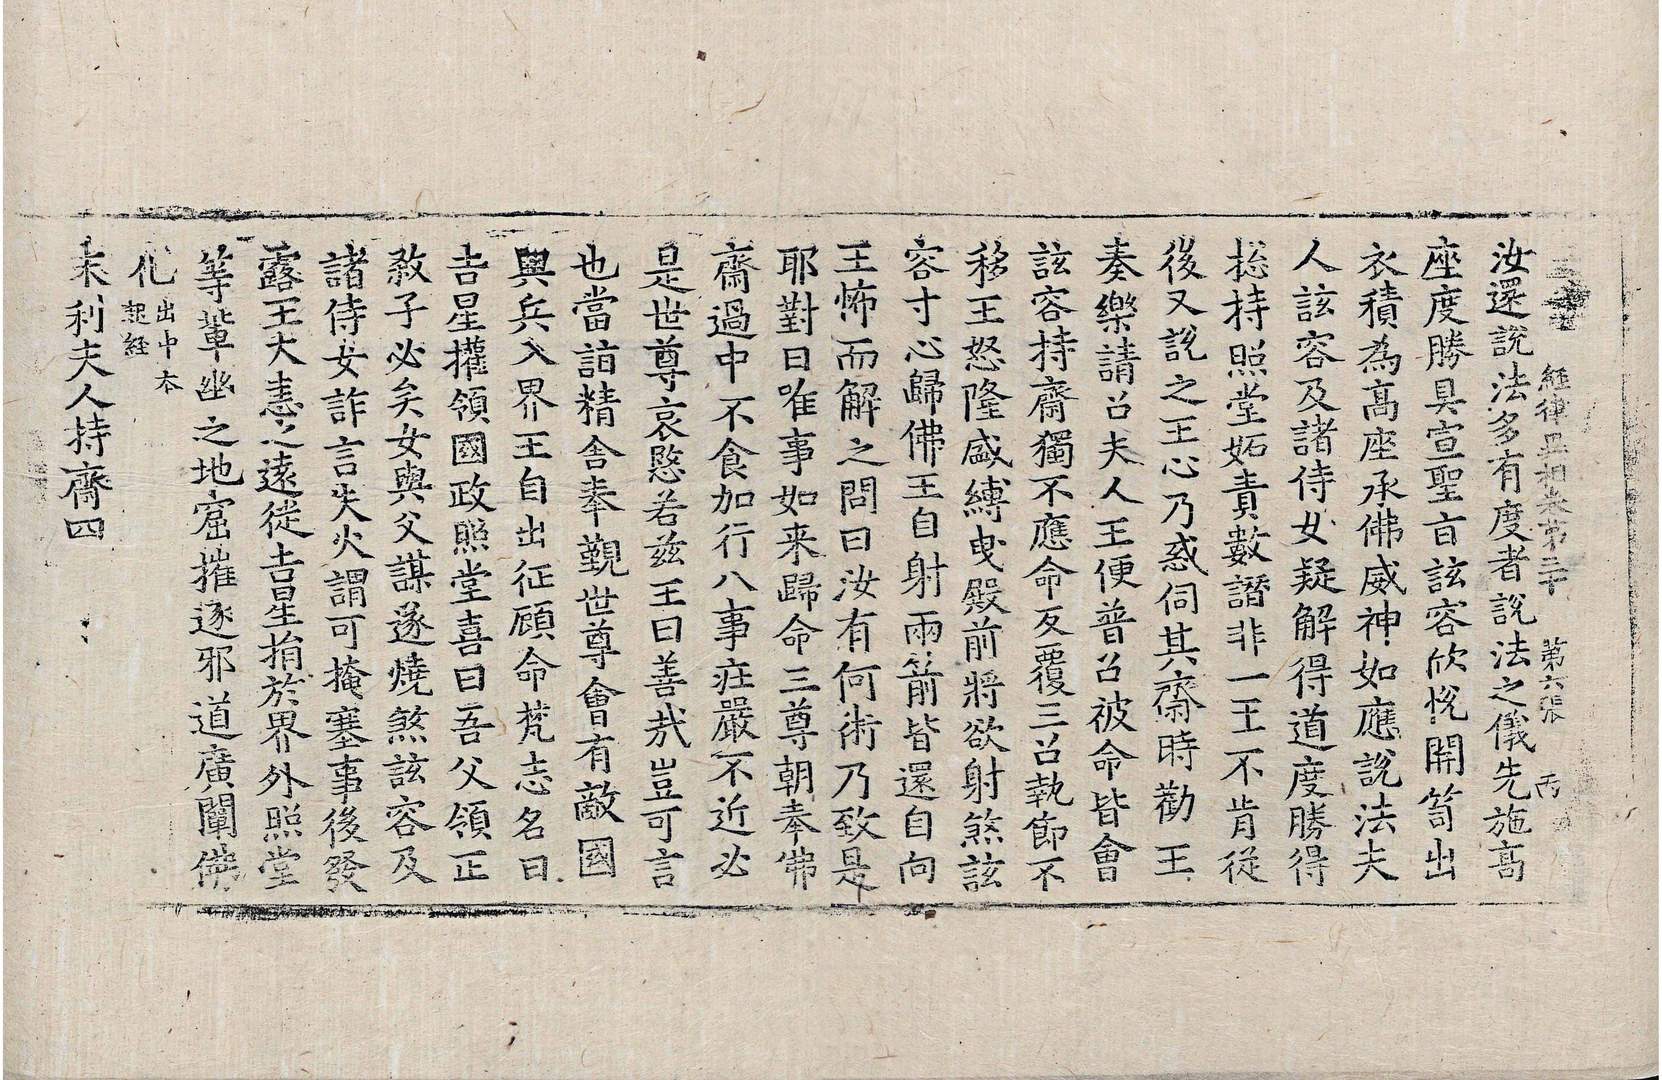 經律異相卷第三十　第六張　丙
汝還說法多有度者說法之儀先施高
座度勝具宣聖旨該容欣悅開笥出
衣積為高座承佛威神如應說法夫
人該容及諸侍女疑解得道度勝得
捴持照堂妬責數譖非一王不肯從
後又說之王心乃惑伺其齋時勸王
奏樂請召夫人王便普召被命皆會
該容持齋獨不應命反覆三召執節不
移王怒隆盛縛曳殿前將欲射煞該
容寸心歸佛王自射兩箭皆還自向
王怖而解之問曰汝有何術乃致是
耶對曰唯事如来歸命三尊朝奉佛
齋過中不食加行八事莊嚴不近必
是世尊哀愍若兹王曰善㢤豈可言
也當詣精舍奉覲世尊會有敵國
興兵入界王自出征顧命梵志名曰
吉星攉領國政照堂喜曰吾父領正
敎子必矣女與父謀遂燒煞該容及
諸侍女詐言失火謂可掩塞事後發
露王大恚之遠徙吉星捐於界外照堂
等輩幽之地窟摧逐邪道廣闡佛
化出中本
起經
末利夫人持齋四